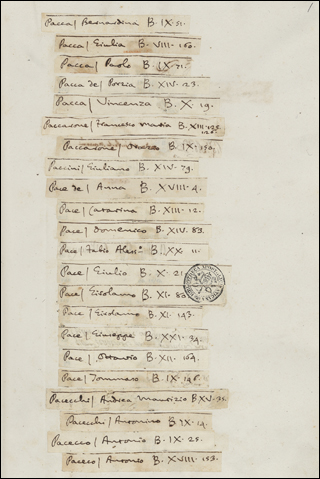 Pacca/ Bernardina B. IX. 51.
Pacca/ Giulia B. VIII. 160.
Pacca/ Paolo B. IX. 71.
Pacca de/ Porzia B. XIV. 23.
Pacca/ Vincenza B. X. 19.
Paccarone/ Francesco Maria B. XIII.
Paccarone/ B. IX.
Paccini/ Giuliano B. XIV. 79.
Pace de/ Anna B. XVIII. 4.
Pace/ Catarina B. XIII. 12.
Pace/ Domenico B. XIV. 83.
Pace/ Fabio B. XX. 11.
Pace/ Giulio B. X. 21
Pace/ Girolamo B. XI. 80
Pace/ Girolamo B. XI. 143.
Pace/ Giuseppe B. XXI. 34.
Pace/ Ottavio B. XII. 164.
Pace/ Tommaso B. IX. 146.
Pacecchi/ Andrea Maurizio B. XV. 35.
Pacecchi/ Antonino B. IX. 14.
Pacecco/ Antonio B. IX. 25.
Paceco/ Antonio B. XVIII. 153.